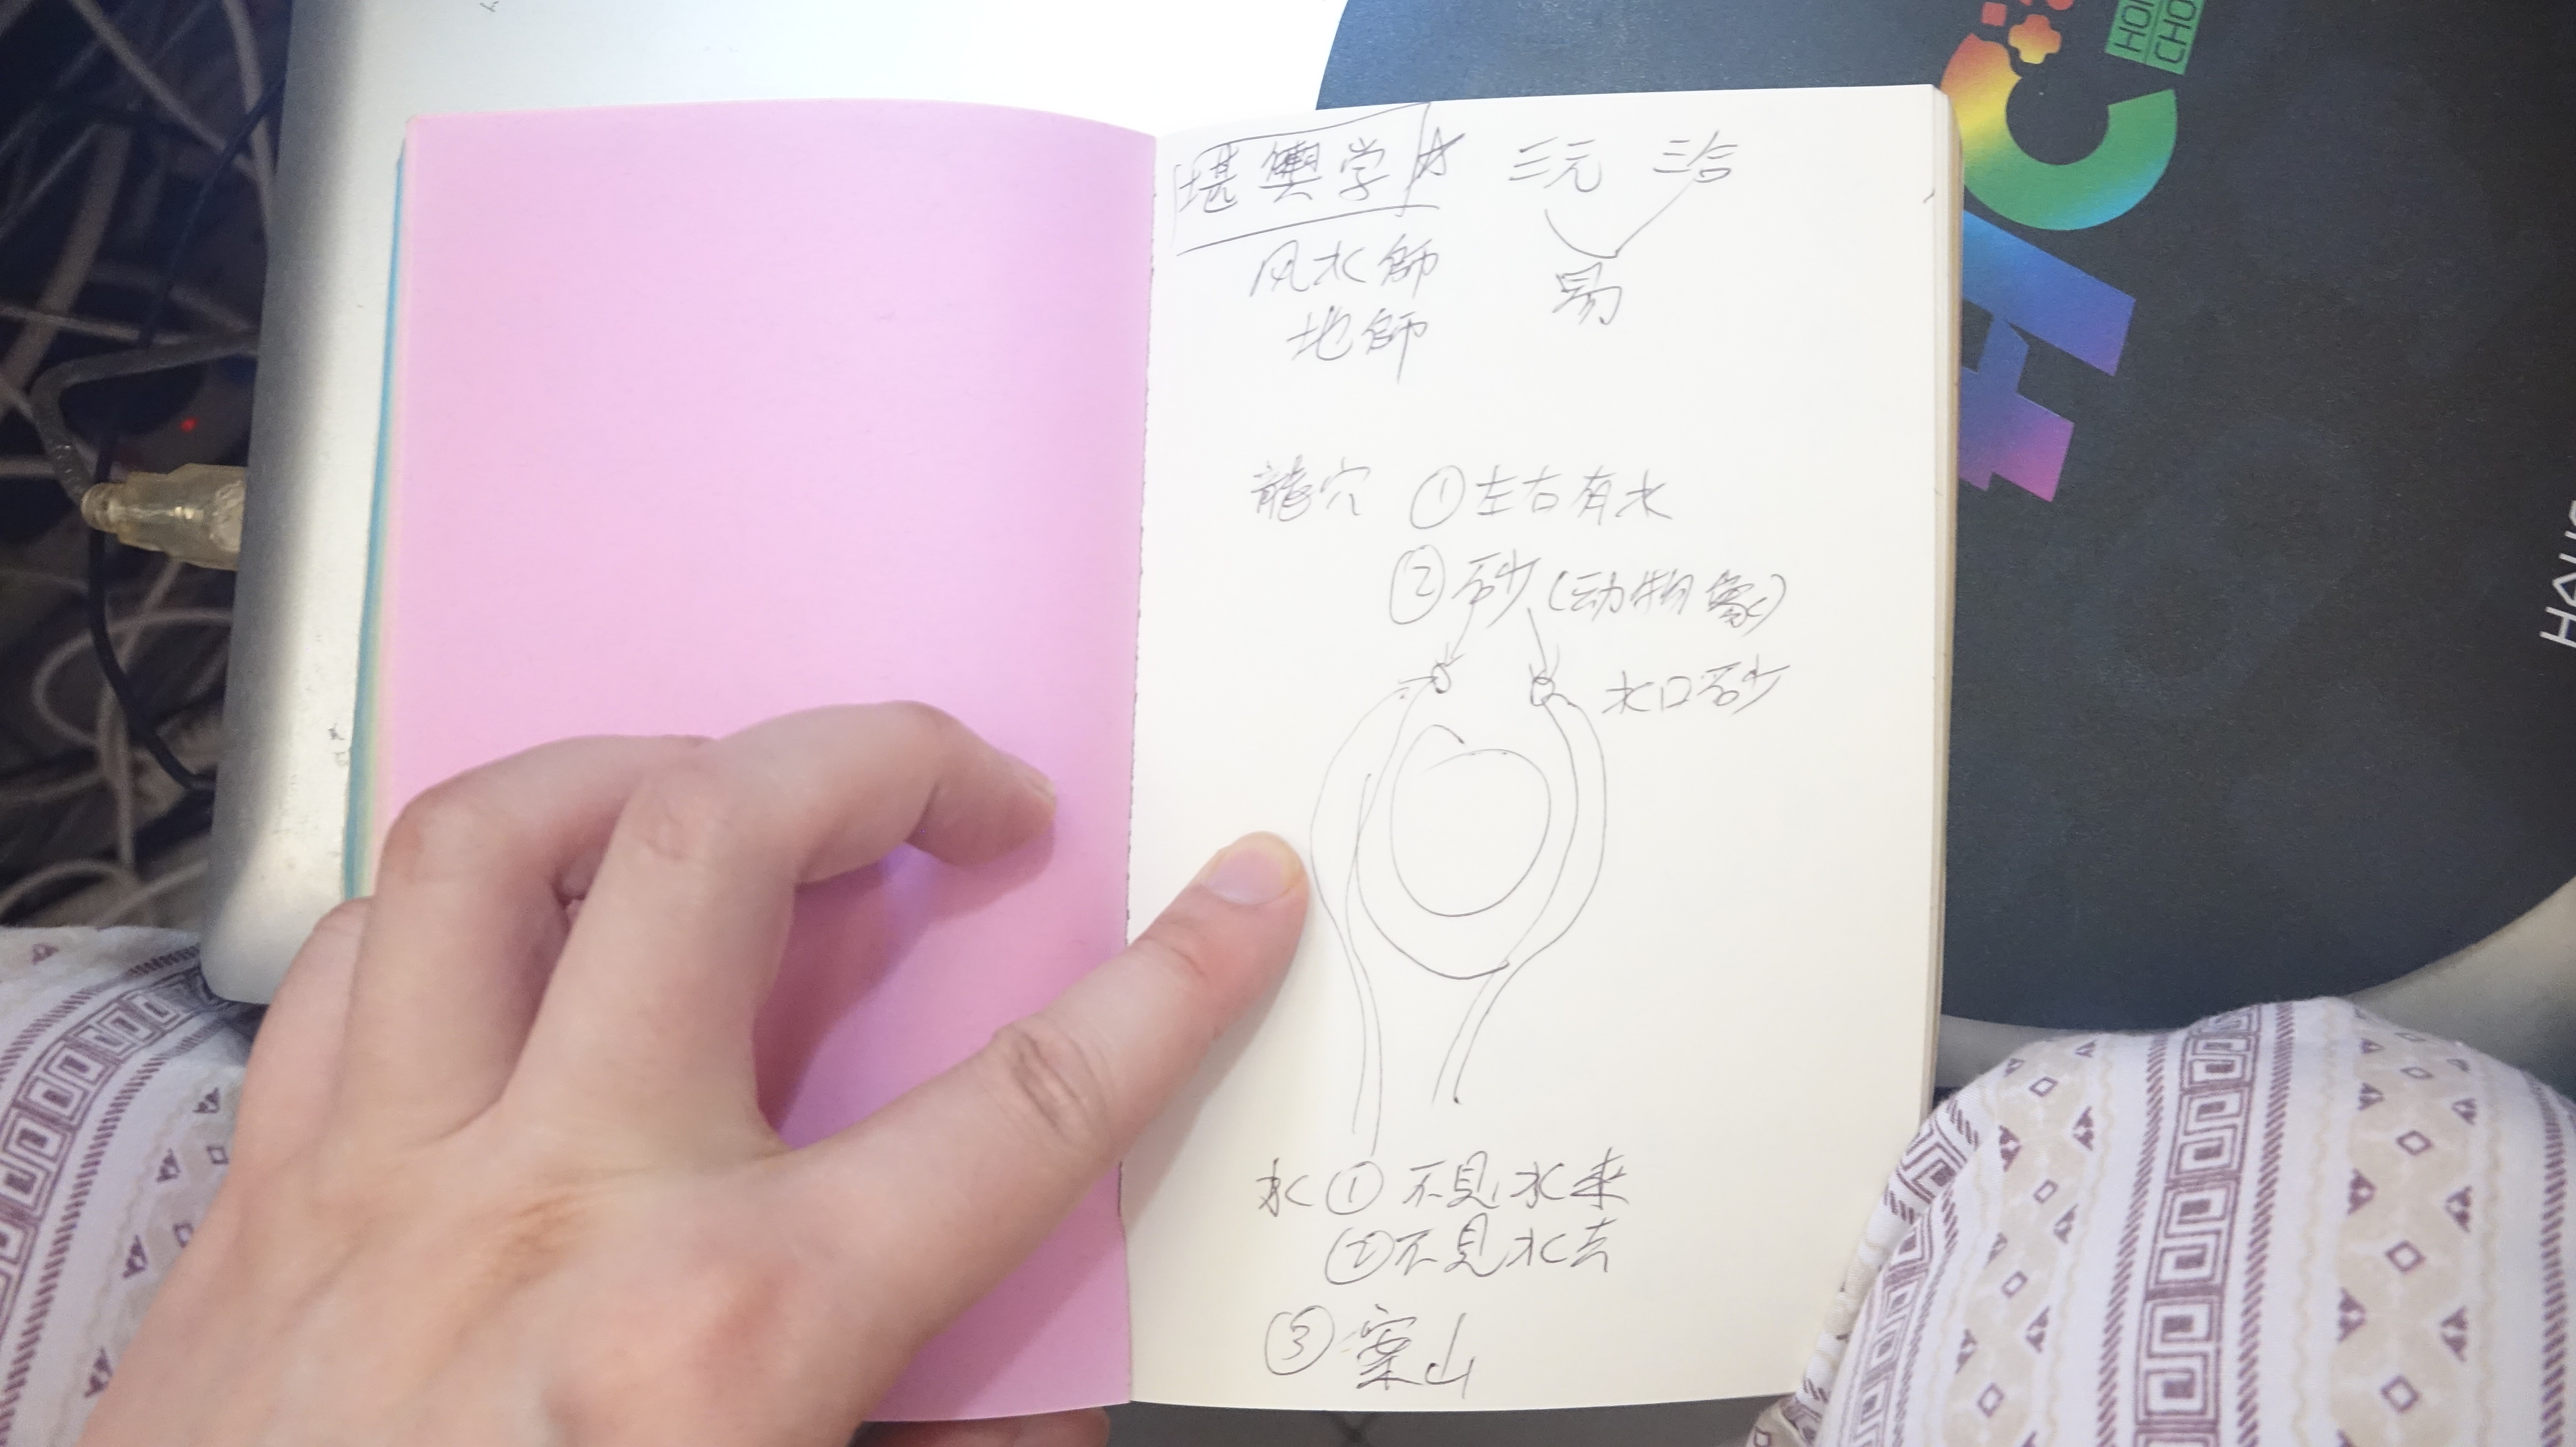 堪輿学 三元 三合
风水師 易
地師
龍穴 ①左右有水
②砂(动物象)
水口砂
水①不見水来
②不見水去
③案山
HC